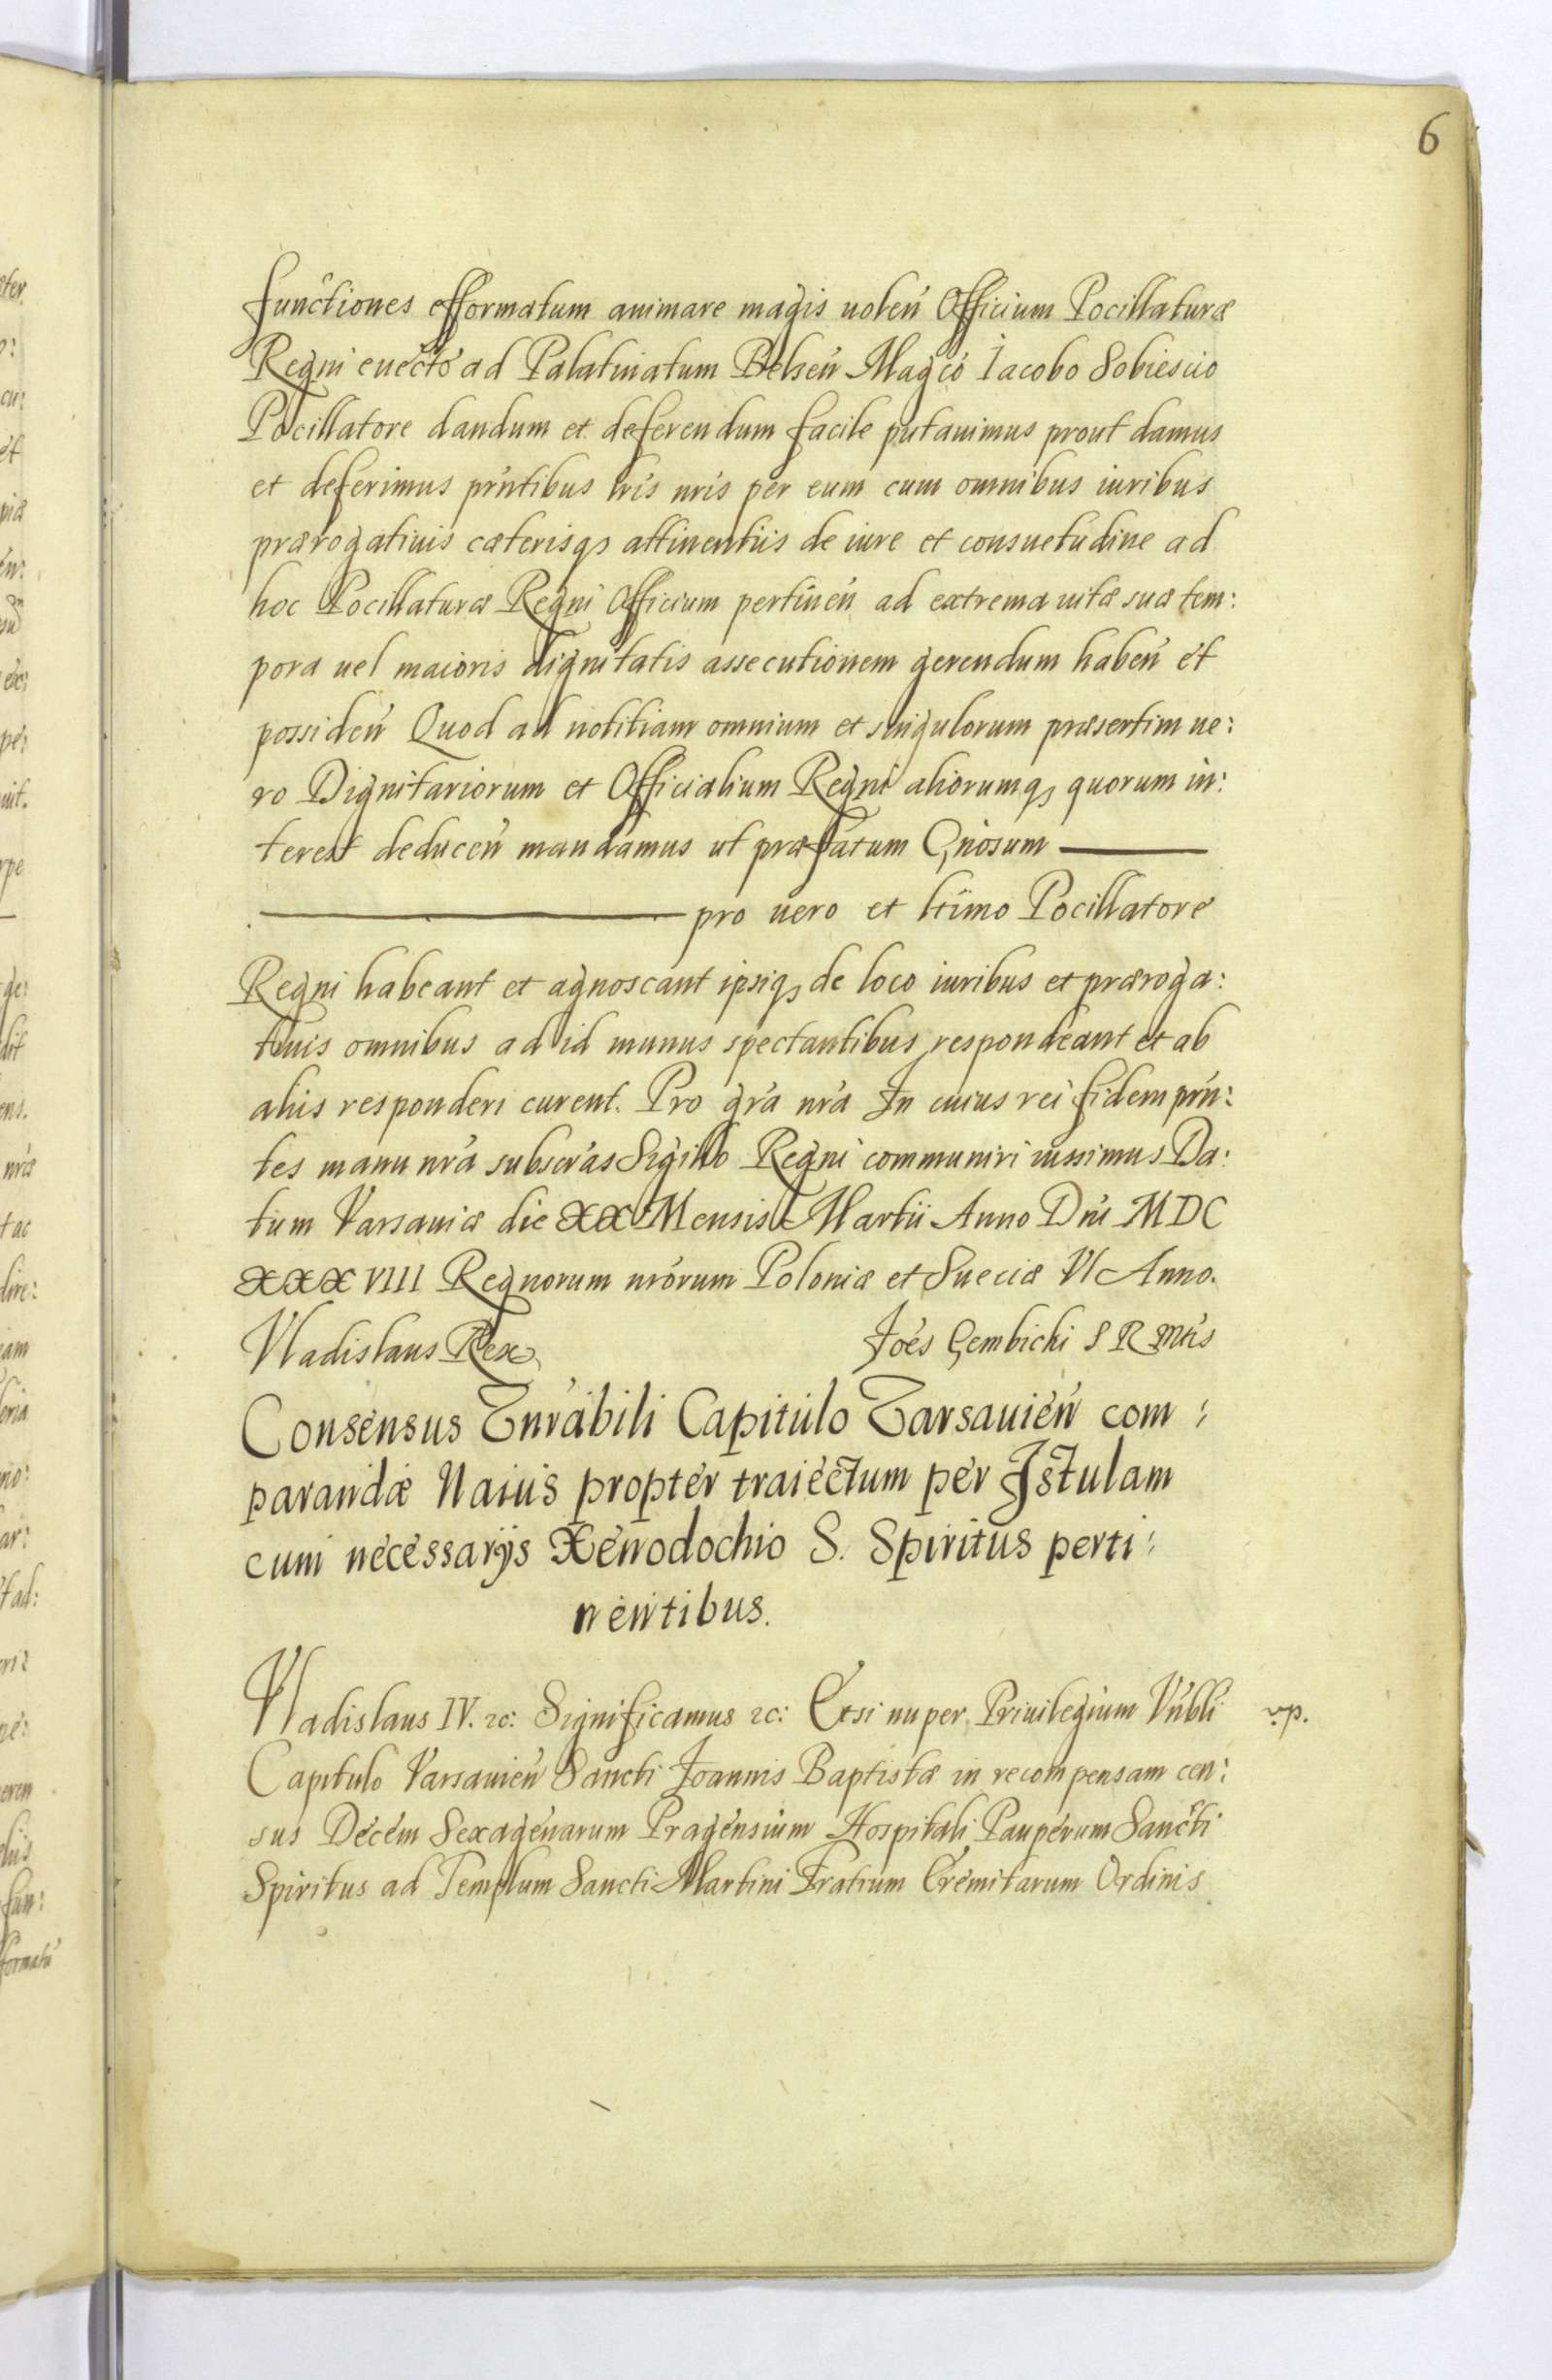 6
functiones efformatum animare magis uolen̄ Officium Pocillaturæ
Regni euecto ad Palatinatum Belsen̄ Magco Iacobo Sobiescio
Pocillatore dandum et deferendum facile putauimus prout damus
et deferimus prn̄tibus lr̄is nr̄is per eum cum omnibus iuribus
prærogatiuis cæterisqs attinentiis de iure et consuetudine ad
hoc Pocillaturæ Regni Officium pertinen̄ ad extrema uitæ suæ tem:
pora uel maioris dignitatis assecutionem gerendum haben̄ et
possiden̄ Quod ad notitiam omnium et singulorum præsertim ue:
ro Dignitariorum et Officialium Regni aliorumqs quorum in:
terest deducen̄ mandamus ut præfatum Gn̄osum
pro uero et ltimo Pocillatore
Regni habeant et agnoscant ipsiqs de loco iuribus et præroga:
tiuis omnibus ad id munus spectantibus respondeant et ab
aliis responderi curent. Pro gr̄a nr̄a In cuius rei fidem prn̄:
tes manu nr̄a subscr̄as Sigillo Regni communiri iussimus Da:
tum Varsauiæ die XX Mensis Martii Anno Dn̄i MDC
XXXVIII Regnorum nr̄orum Poloniæ et Sueciæ VI Anno.
Vladislaus Rex Joēs Gembicki S R Mtis
Consensus Vnrābili Capitulo Varsauien̄ com:
parandæ Nauis propter traiectum per Istulam
cum necessarijs Xenodochio S. Spiritus perti:
nentibus.
Vladislaus IV. 2c: Significamus 2c: Etsi nuper Priuilegium Vn̄bli
Capitulo Varsauien̄ Sancti Joannis Baptistæ in recompensam cen:
sus Decem Sexagenarum Pragensium Hospitali Pauperum Sancti
Spiritus ad Templum Sancti Martini Fratrum Eremitarum Ordinis